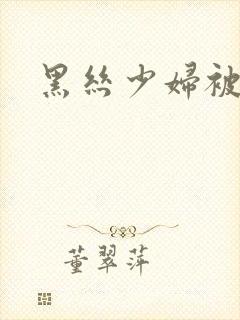 黑丝少婦被
董翠萍